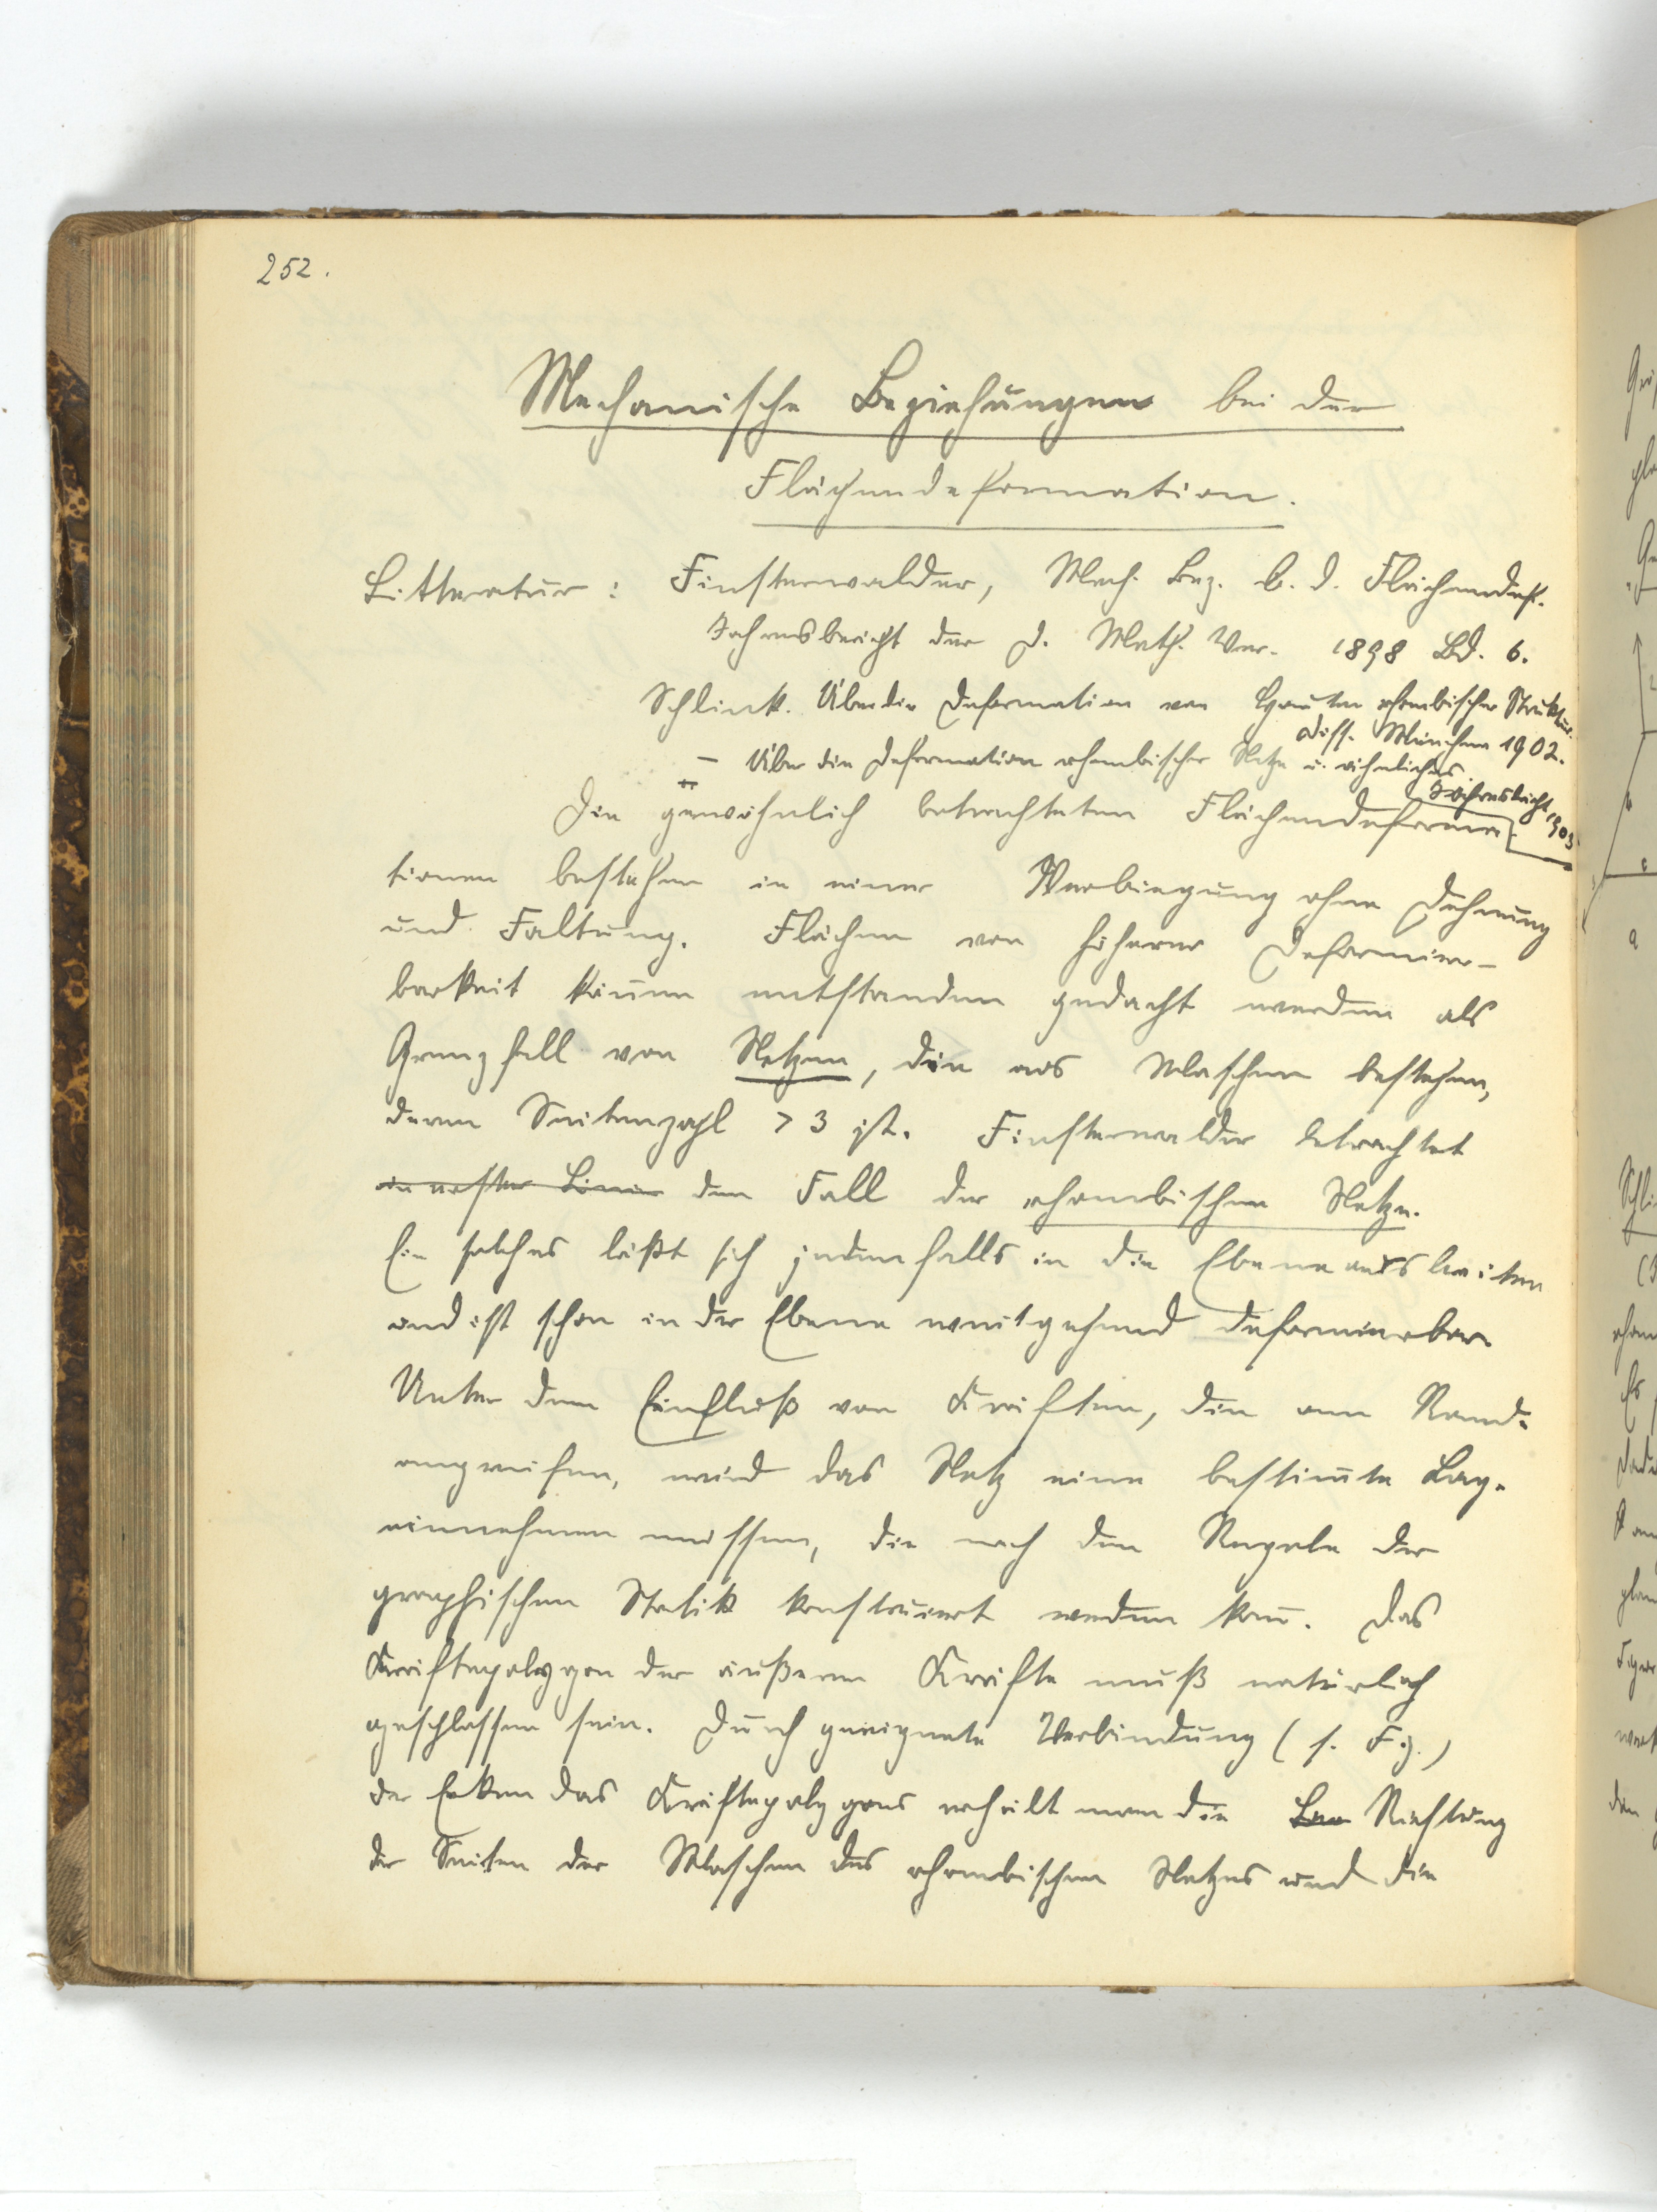 252.
Mechanische Beziehungen bei der
Flächendeformation.
Litteratur: Finsterwalder, Mech. Bez. b. d. Flächendef.
Jahresbericht der D. Math. Ver. 1898 Bd. 6.
Schlink. Über die Deformation von Häuten rhombischer Struktur.
Diss. München 1902.
— Über die Deformation rhombischer Netze u. ähnliches.
Jahresbericht 1903
Die gewöhnlich betrachteten Flächendeforma-
tionen bestehen in einer Verbiegung ohne Dehnung
und Faltung. Flächen von höherer Deformier-
barkeit können entstanden gedacht werden als
Grenzfall von Netzen, die aus Maschen bestehen,
deren Seitenzahl > 3 ist. Finsterwalder betrachtet
in erster Linie den Fall der rhombischen Netze.
Ein solches läßt sich jedenfalls in die Ebene ausbreiten
und ist schon in der Ebene weitgehend deformierbar.
Unter dem Einfluß von Kräften, die am Rande
angreifen, wird das Netz eine bestim̅te Lage
einnehmen müssen, die nach den Regeln der
graphischen Statik konstruiert werden kan̅. Das
Kräftepolygon der äußeren Kräfte muß natürlich
geschlossen sein. Durch geeignete Verbindung (s. Fig.)
der Ecken das Kräftepolygons erhält man die Richtung
der Seiten der Maschen des rhombischen Netzes und die